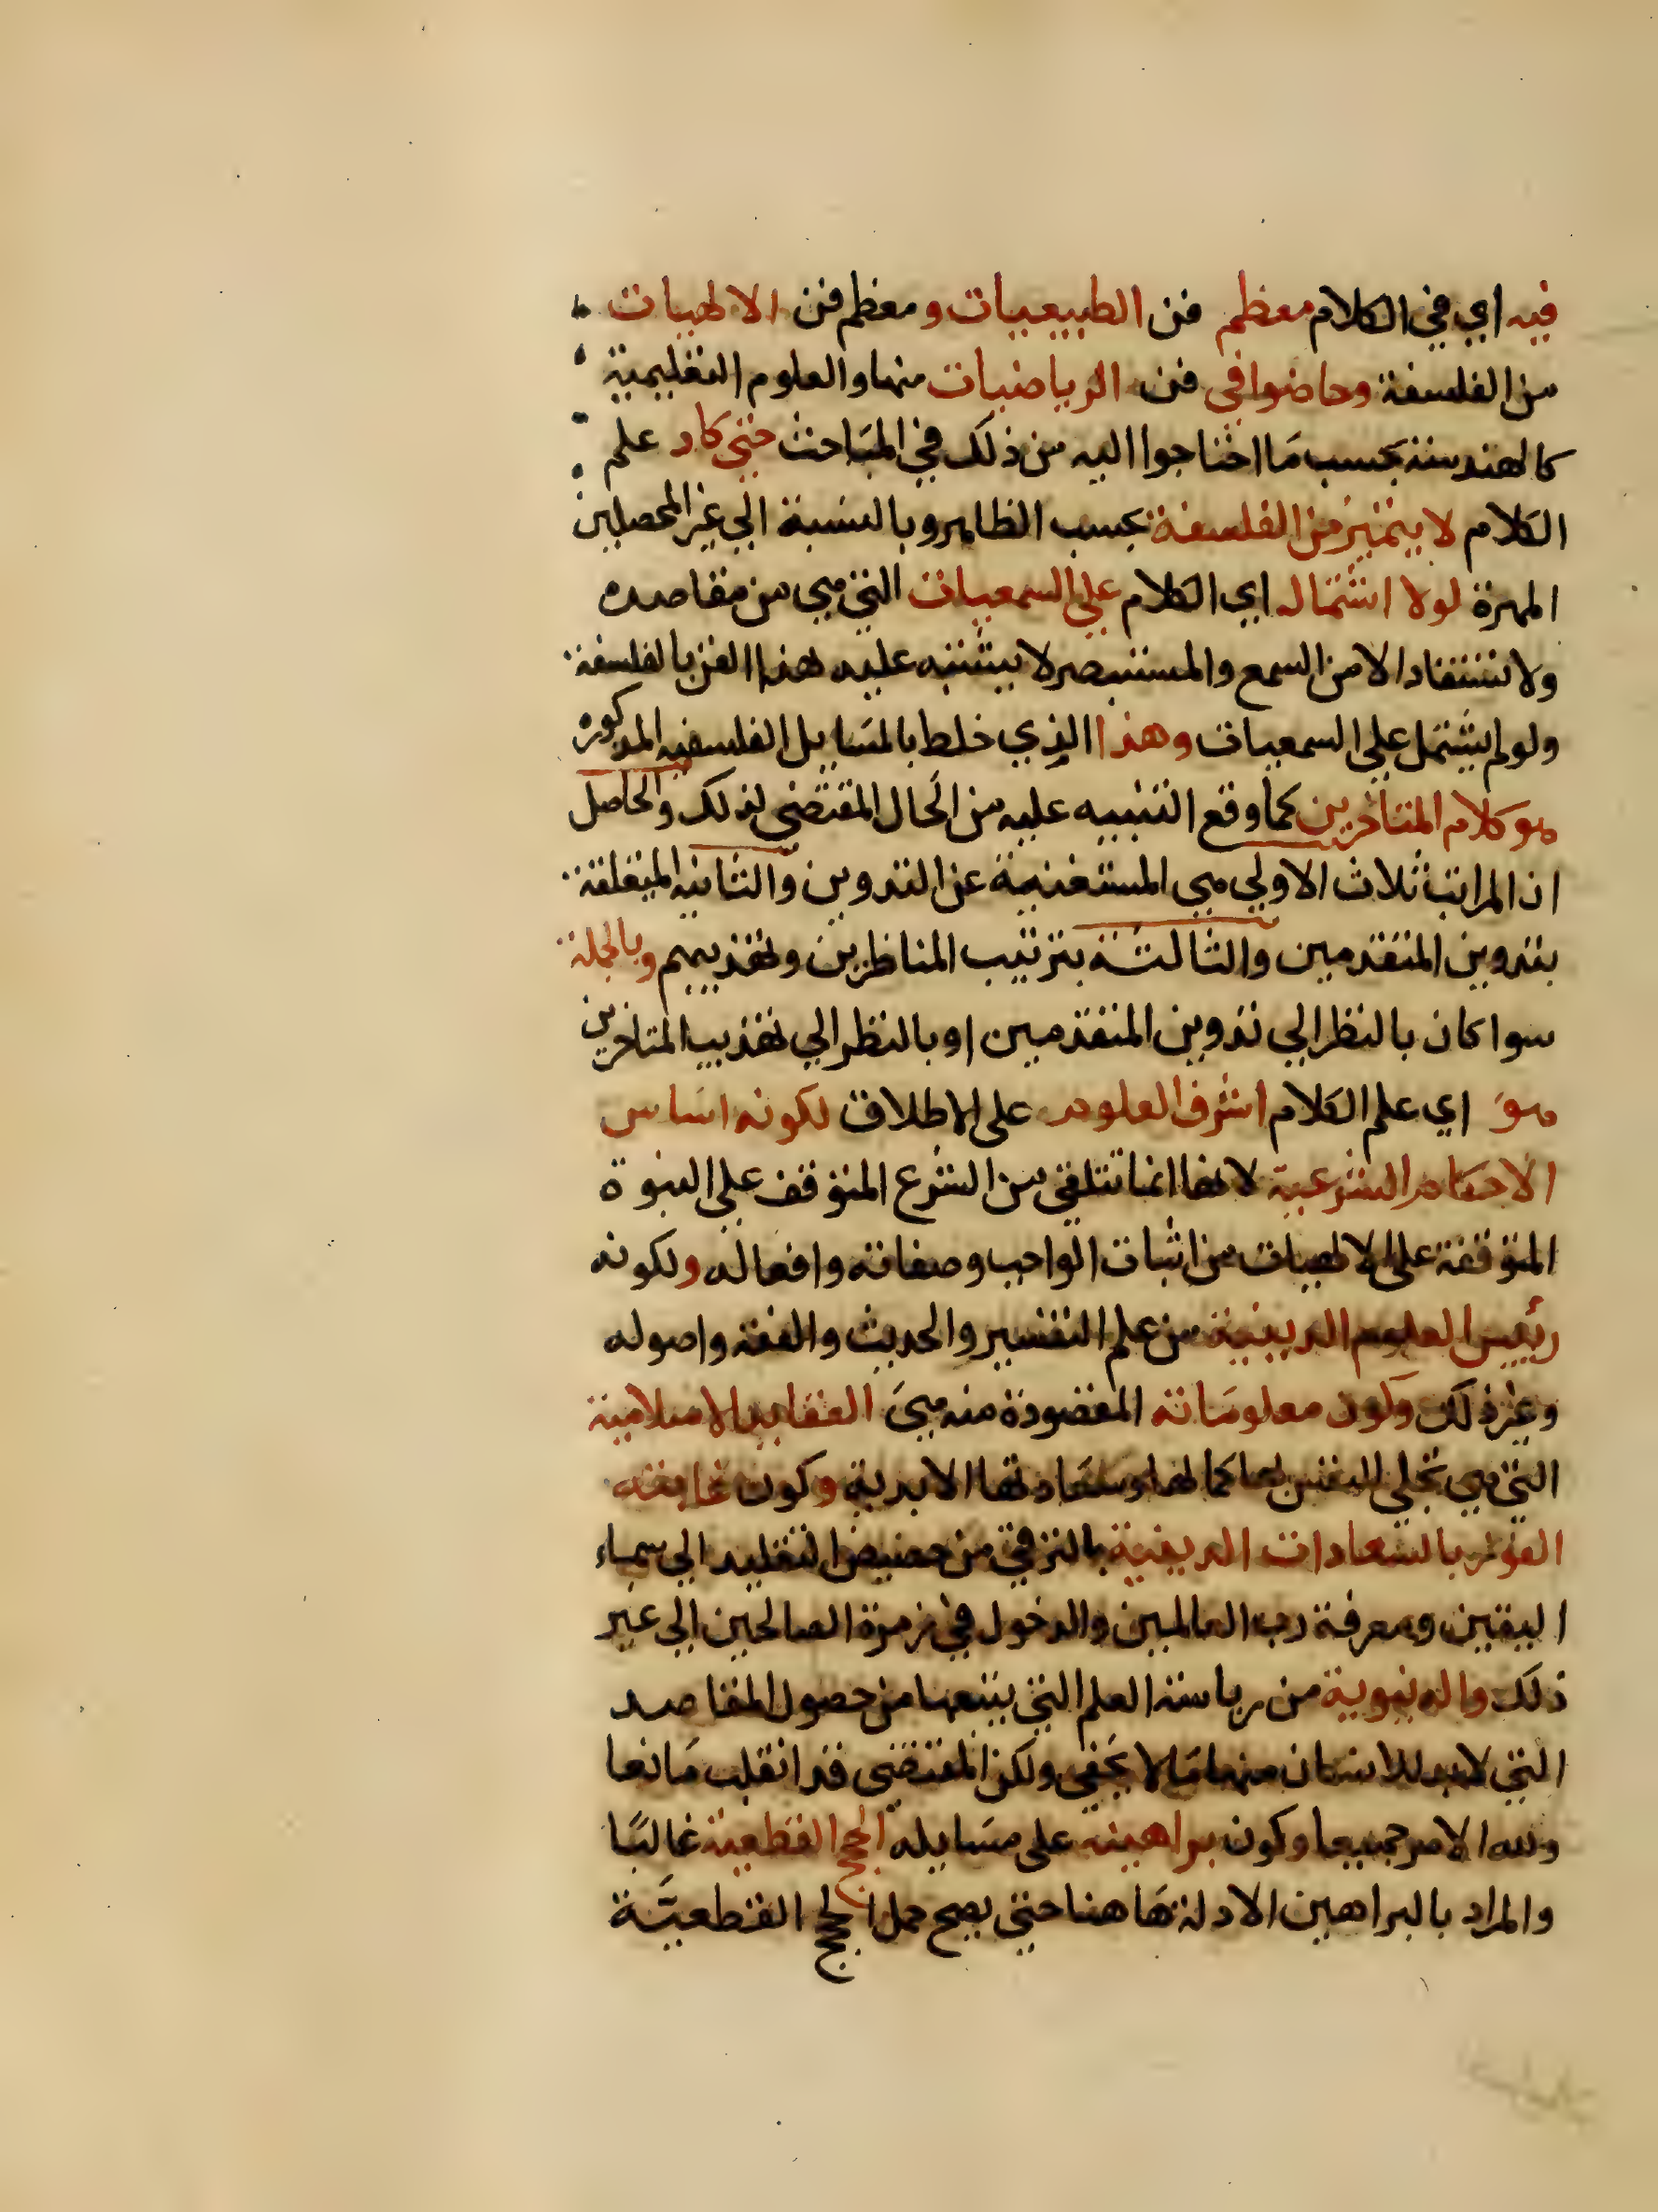 فيه اي في الكلام معظم فن الطبيعيات ومعظم فن الالهيات
من الفلسفة وخاضوا في فن الرياضيات منها والعلوم التعليمية
كالهندسة بحسب ما احتاجوا اليه من ذلك في المباحث حتى كاد علم
الكلام لا يتميز من الفلسفة بحسب الظاهر وبالنسبة الي غير المحصلين
المهرة لولا اشتماله اي الكلام علي السمعيات التي هي من مقاصده
ولا تستفاد الا من السمع والمستبصر لا يشتبه عليه هذا الفن بالفلسفة
ولو لم يشتمل علي السمعيات وهذا الذي خلط بالمسايل الفلسفيه المذكورة
هو كلام المتاخرين كما وقع التنبيه عليه من الحال المقتضي لذلك والحاصل
ان المراتب ثلاث الاولي هي المستغنية عن التدوين والثانيه المتعلقة
بتدوين المتقدمين والثالثة بترتيب المناظرين وتهذيبهم وبالجملة
سوا كان بالنظر الي تدوين المتقدمين او بالنظر الي تهذيب المتاخرين
هو اي علم الكلام اشرف العلوم على الاطلاق لكونه اساس
الاحكام الشرعية لانها انما تتلقي من الشرع المتوقف علي النبوة
المتوقفة علي الالهيات من اثبات الواجب وصفاته وافعاله ولكونه
رئيس العلوم الدينية من علم التفسير والحديث والفقه واصوله
وغير ذلك وكون معلوماته المقصودة منه هي العقايد الاسلامية
التي هي تجلي النفس بها كمالها وسعادتها الابدية وكون غايته
الفوز بالسعادات الدينية بالترقي من حضيض التقليد الي سماء
اليقين ومعرفة رب العالمين والدخول في زمرة الصالحين الي غير
ذلك والدنيوية من رياسة العلم التي يتبعها من حصول المقاصد
التي لابد للانسان منها ما لا يخفي ولكن المقتضي قد انقلب مانعا
ولله الامر جميعا وكون براهينه على مسايله الحجج القطعية غالبًا
والمراد بالبراهين الادلة هاهنا حتي يصح حمل الحجج القطعية